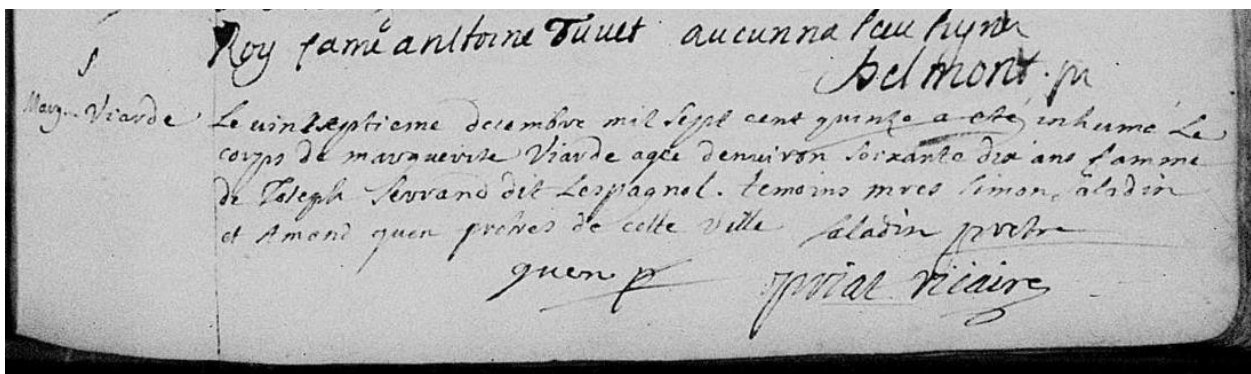 Roy fame anthoine Tuvet aucunna sceu signer
Belmont. pr
S
Marg. Viarde
Le vintseptieme decembre mil sept cent quinze a eté inhumé Le
corps de marguerite Viarde agée denuiron soixante dix ans famme
de Joseph Serrand dit Lespagnol. temoins mres simon saladin
et Amand quen prètres de cette ville saladin prètre
quen p
vicaire